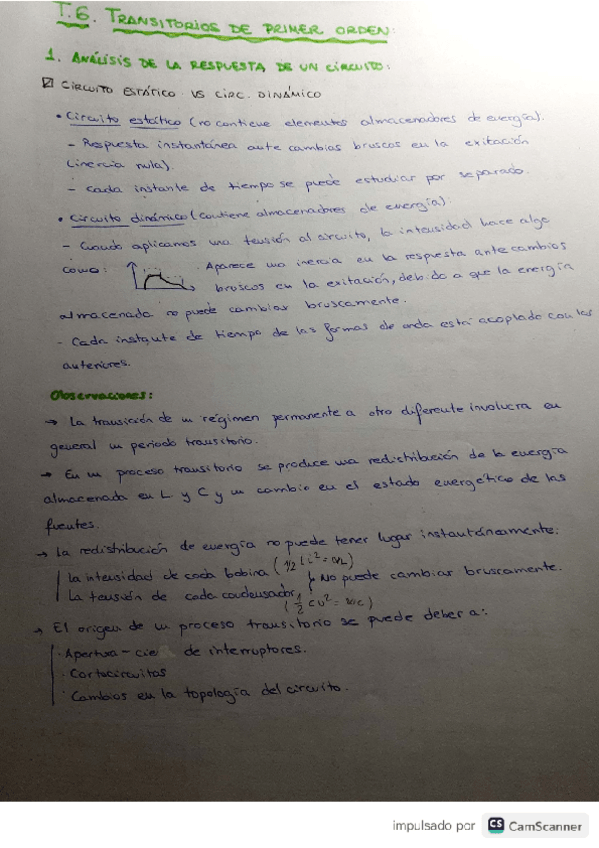 T.6. TRANSITORIOS DE PRIMER ORDEN:
1. ANÁLISIS DE LA RESPUESTA DE UN CIRCUITO:
CIRCUITO ESTÁTICO VS CIRC. DINÁMICO
• Circuito estático (no contiene elementos almacenadores de energía).
- Respuesta instantánea ante cambios bruscos en la exitación
(inercia nula).
- Cada instante de tiempo se puede estudiar por separado.
• Circuito dinámico (contiene almacenadores de energía):
- Cuando aplicamos una tensión al circuito, la intensidad hace algo
como: . Aparece una inercia en la respuesta ante cambios
bruscos en la exitación, debido a que la energía
almacenada no puede cambiar bruscamente.
- Cada instante de tiempo de las formas de onda está acoplado con los
anteriores.
Observaciones:
→ La transición de un régimen permanente a otro diferente involucra en
general un periodo transitorio.
→ En un proceso transitorio se produce una redistribución de la energía
almacenada en L y C y un cambio en el estado energético de las
fuentes.
→ La redistribución de energía no puede tener lugar instantáneamente:
La intensidad de cada bobina (1/2 Li² = ) No puede cambiar bruscamente.
La tensión de cada condensador (1/2 cv² = )
→ El origen de un proceso transitorio se puede deber a:
· Apertura - de interruptores.
· Cortocircuitos
· Cambios en la topología del circuito.
impulsado por CS CamScanner